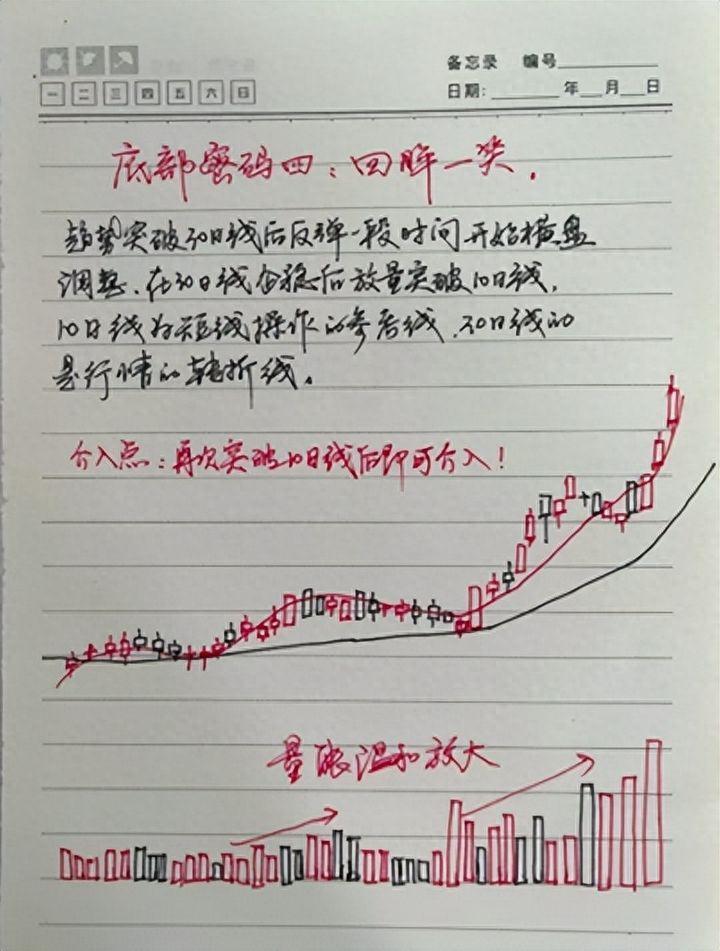 备忘录 编号
一 二 三 四 五 六 日
日期: 年 月 日
底部密码四：回眸一笑.
趋势突破30日线后反弹一段时间开始横盘
调整、在30日线企稳后放量突破10日线,
10日线为短线操作的参考线、30日线的
是行情的转折线。
介入点：再次突破10日线后即可介入!
量能温和放大